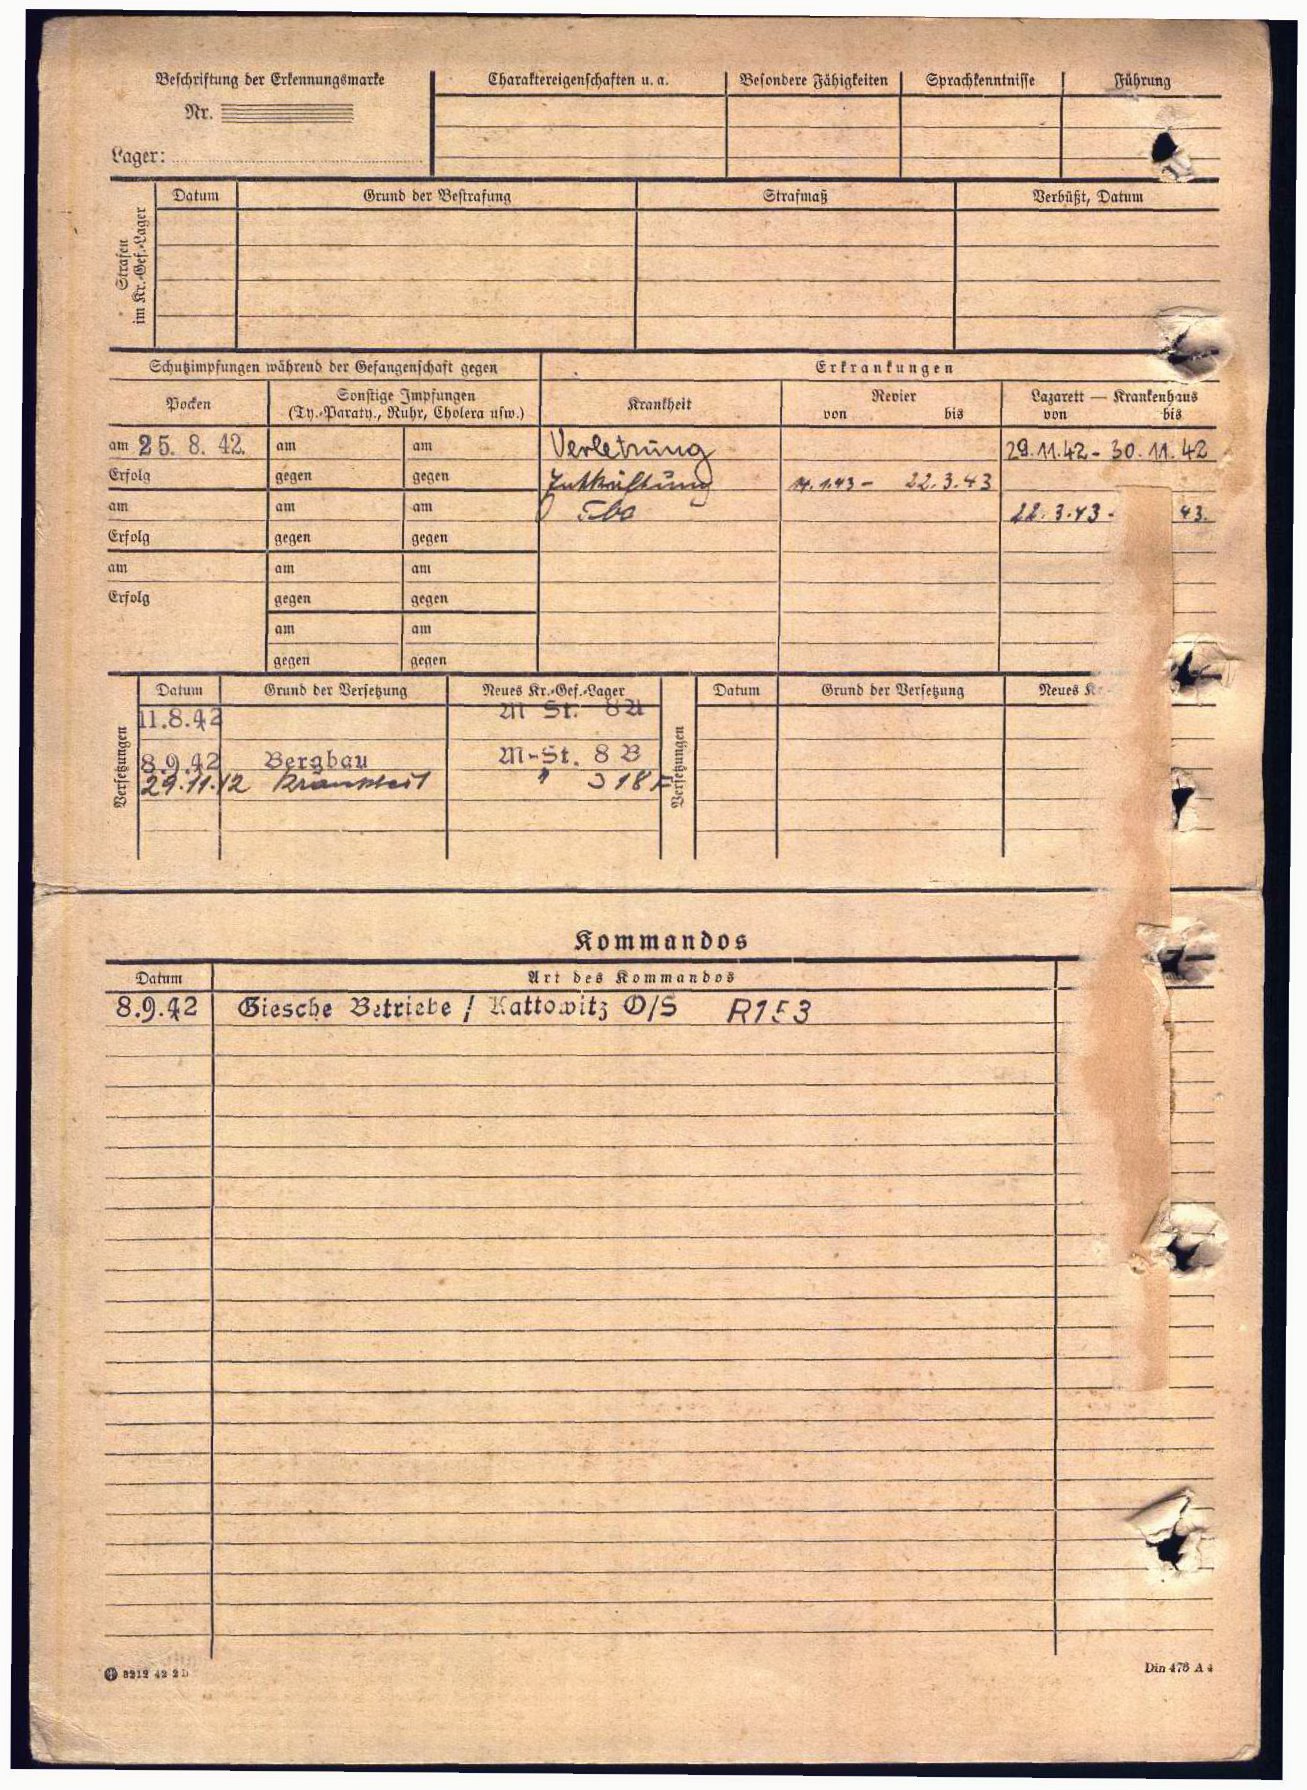 Beschriftung der Erkennungsmarke
Nr.
Lager:
Charaktereigenschaften u. a. Besondere Fähigkeiten Sprachkenntnisse Führung
Strafen im Kr.-Gef.-Lager
Datum Grund der Bestrafung Strafmaß Verbüßt, Datum
Schutzimpfungen während der Gefangenschaft gegen Erkrankungen
Pocken Sonstige Impfungen (Ty.-Paraty., Ruhr, Cholera usw.) Krankheit Revier von bis Lazarett — Krankenhaus von bis
am 25. 8. 42. am am Verletzung 29.11.42 - 30.11.42
Erfolg gegen gegen Entkräftung 14.1.43 - 22.3.43
am am am Tbc 22.3.43 - 43.
Erfolg gegen gegen
am am am
Erfolg gegen gegen
am am
gegen gegen
Versetzungen Datum Grund der Versetzung Neues Kr.-Gef.-Lager Versetzungen Datum Grund der Versetzung Neues Kr.-
11.8.42 M St. 8A
8.9.42 Bergbau M-St. 8 B
29.11.42 Krankheit " 318 F
Kommandos
Datum Art des Kommandos
8.9.42 Giesche Betriebe / Kattowitz O/S R153
8212 42 2 D Din 476 A 4